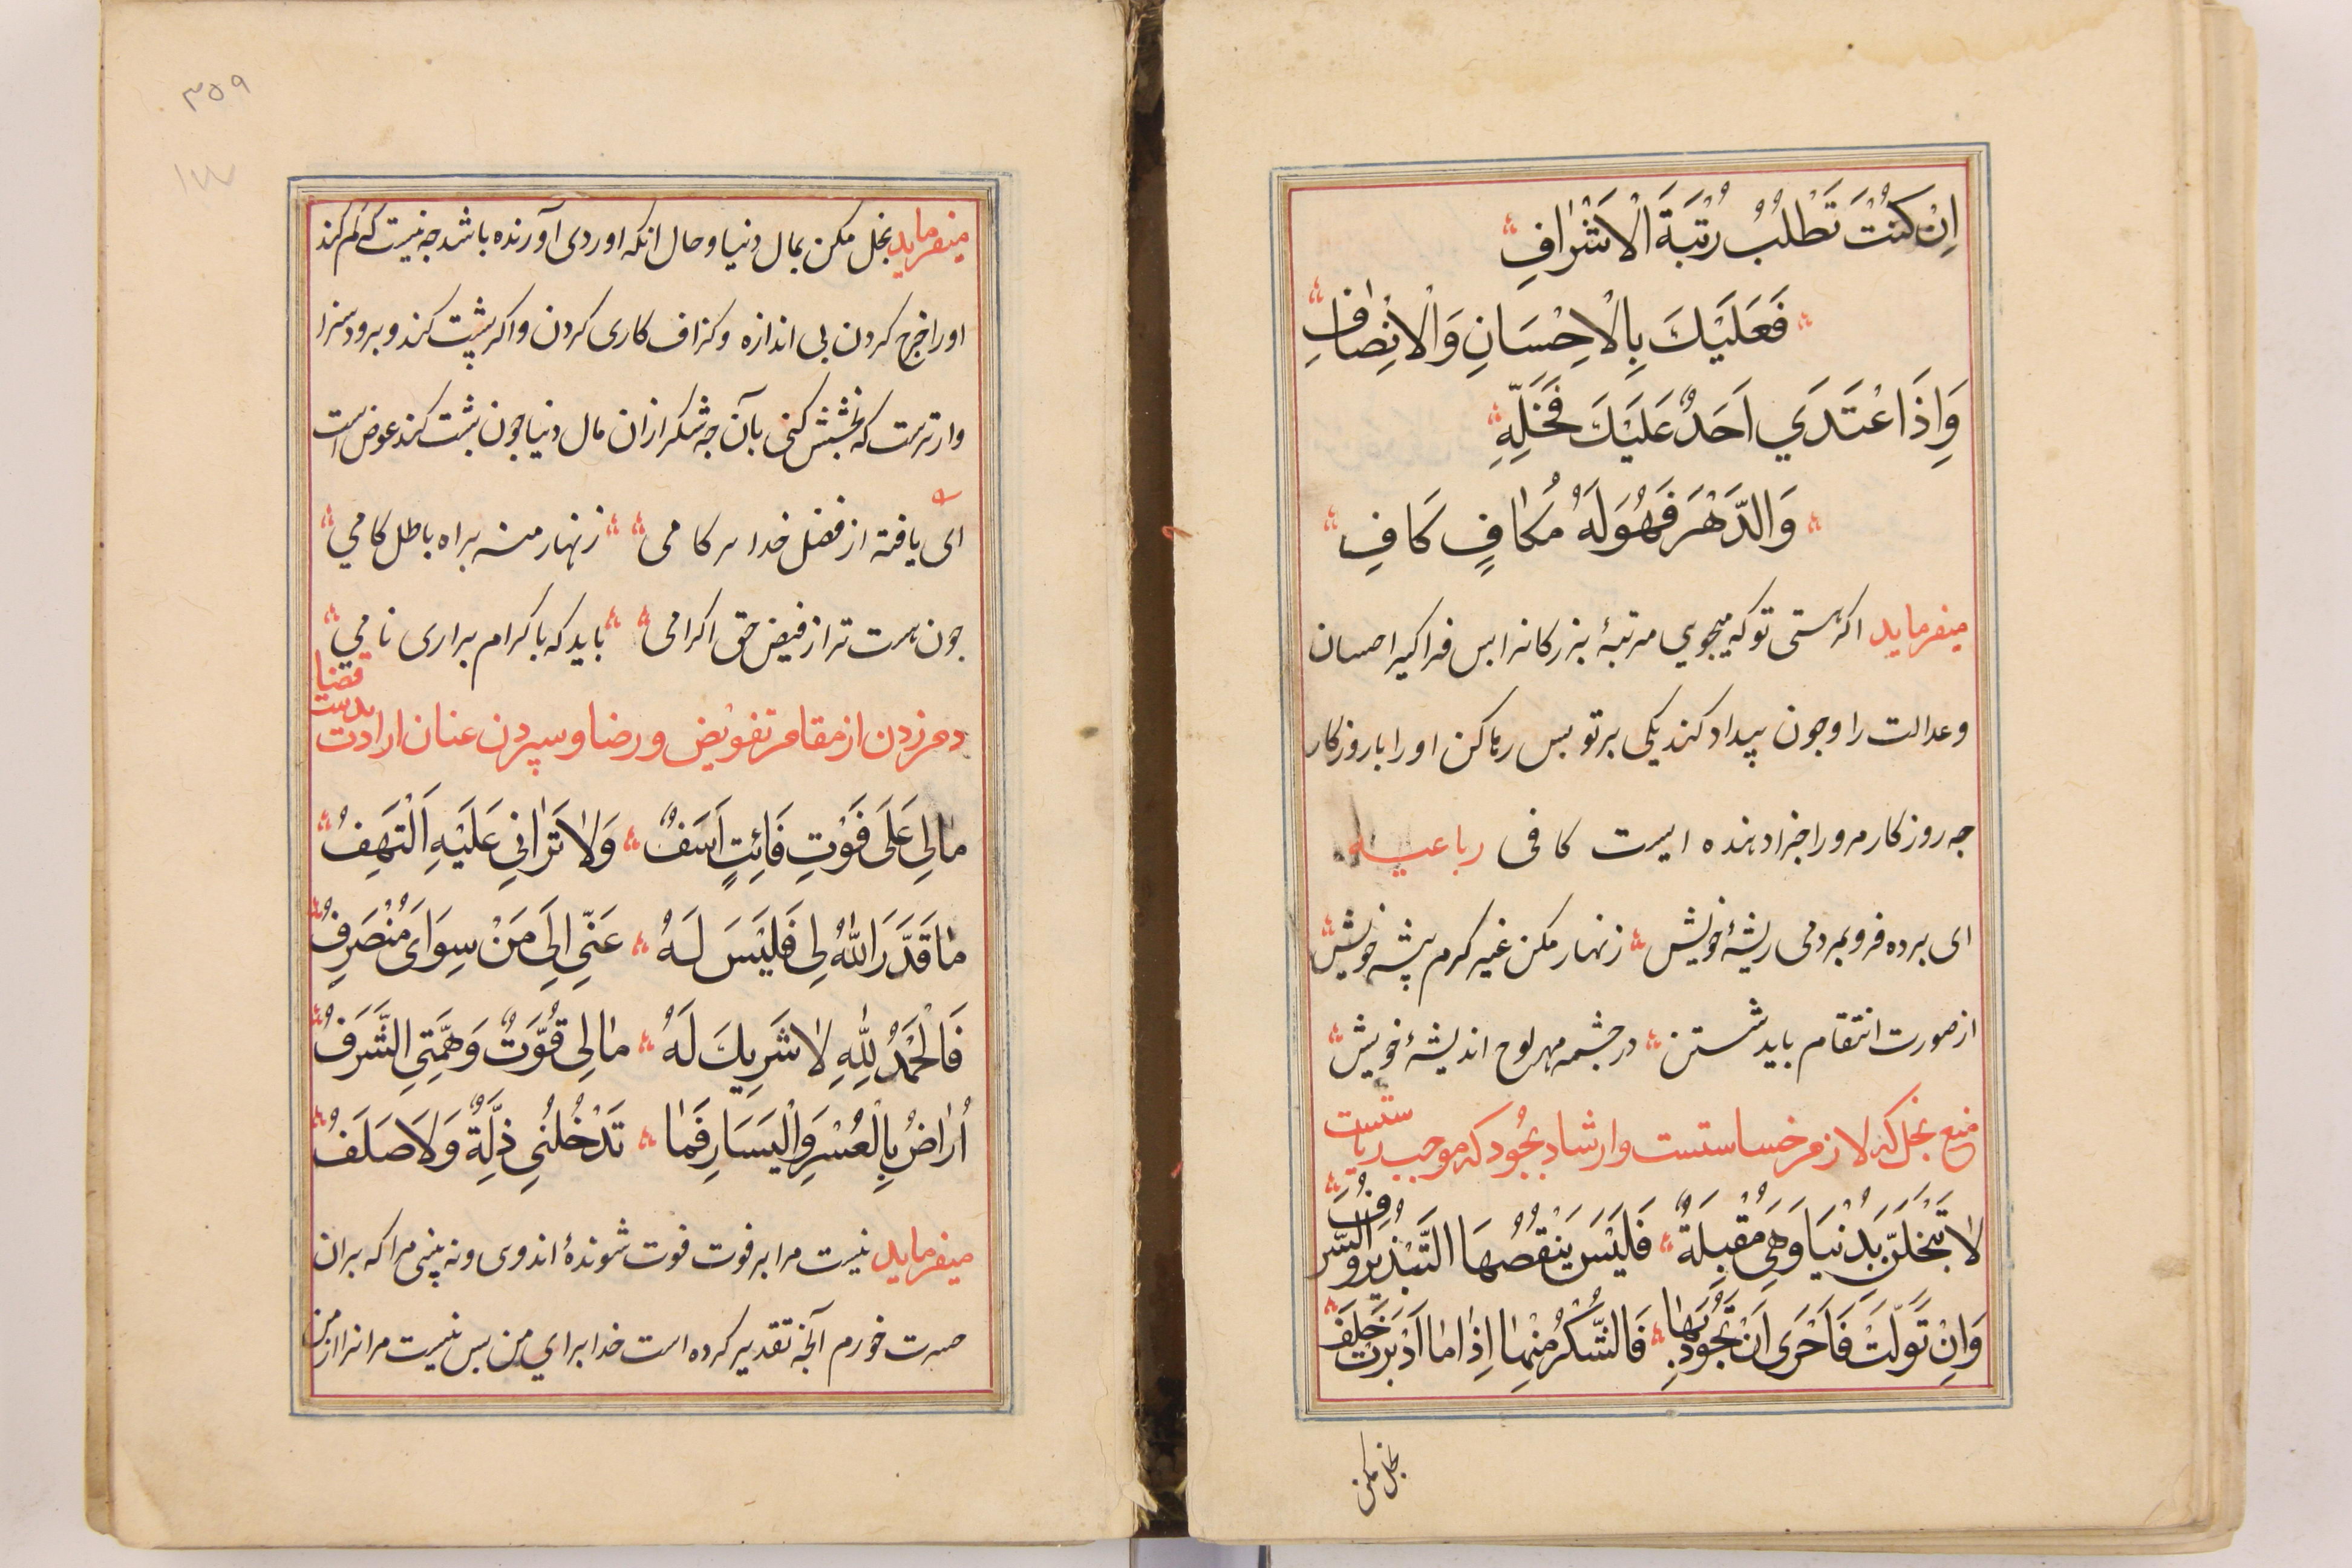 اِنْ كُنْتَ تَطْلُبُ رُتْبَةَ الْاَشْرٰافِ
فَعَلَيْكَ بِالْاِحْسَانِ وَالْاِنْصٰافِ
وَاِذَا اعْتَدَي اَحَدٌ عَلَيْكَ فَخَلِّهِ
وَالدَّهْرَ فَهُوَ لَهُ مُكٰافٍ كَافِ
میفرماید اکر هستی تو که میجوي مرتبهٔ بزرکانرا بس فراکیر احسان
وعدالت را وجون بیداد کند یکی بر تو بس رها کن اورا با روزکار
جه روزکار مرورا جزا دهنده ایست کافی رباعیه
ای برده فرو بمردمی ریشهٔ خویش زنهار مکن غیر کرم پیشه خویش
از صورت انتقام باید شستن در جشمه مهر لوح اندیشهٔ خویش
منع بخل که لازم خساستست وارشاد بجود که موجب ریاستست
لٰا تَبْخَلَنَّ بِدُنْيَا وَهْيَ مُقْبِلَةٌ فَلَيْسَ يَنْقُصُهَا التَّبْذِيرُ وَالسَّرَفُ
وَاِنْ تَوَلَّتْ فَاَحْرَى اَنْ تَجُودَ بِهٰا فَالشُّكْرُ مِنْهٰا اِذٰا مٰا اَدْبَرَتْ خَلَفُ
بخل مکن
۳۵۹
میفرماید بخل مکن بمال دنیا وحال انکه او روی آورنده باشد جه نیست که کم کند
اورا خرج کردن بی اندازه وکزاف کاری کردن واکر پشت کند وبرود سزا
وارترست که بخشش کنی بآن جه شکر ازان مال دنیا جون پشت کند عوض است
ای یافته از فضل خدا هر کامی زنهار منه براه باطل کامي
جون هست ترا از فیض حق اکرامی باید که باکرام براری نامي
دم زدن از مقام تفویض ورضا وسپردن عنان ارادت بدست قضا
مٰالِي عَلَى فَوْتِ فَائِتٍ اَسَفٌ وَلٰا تَرٰانِي عَلَيْهِ اَلْتَهِفُ
مٰا قَدَّرَ اللّٰهُ لِي فَلَيْسَ لَهُ عَنِّي اِلَى مَنْ سِوَايَ مُنْصَرِفُ
فَالْحَمْدُ لِلّٰهِ لٰا شَرِيكَ لَهُ مٰالِي قُوَّتٌ وَهِمَّتِي الشَّرَفُ
اُرٰاضُ بِالْعُسْرِ وَالْيَسَارِ فَمٰا تَدْخُلُنِي ذِلَّةٌ وَلَا صَلَفُ
میفرماید نیست مرا بر فوت فوت شوندهٔ اندوی ونه بینی مرا که بران
حسرت خورم آنجه تقدیر کرده است خدا برای من بس نیست مرانرا از من